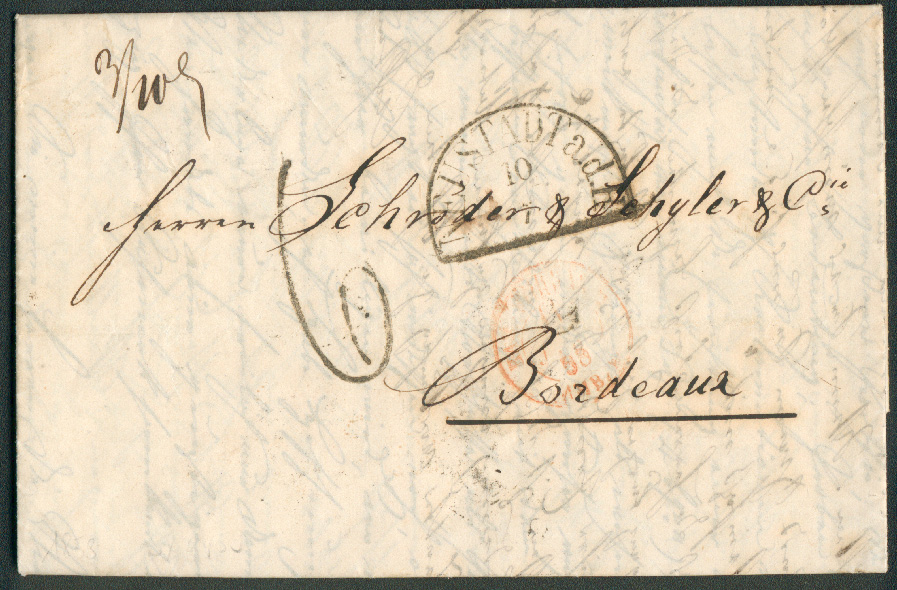 3/10
NEUSTADT a.d.H
10
Herren Schröder & Schyler & Cie
6
Bordeaux